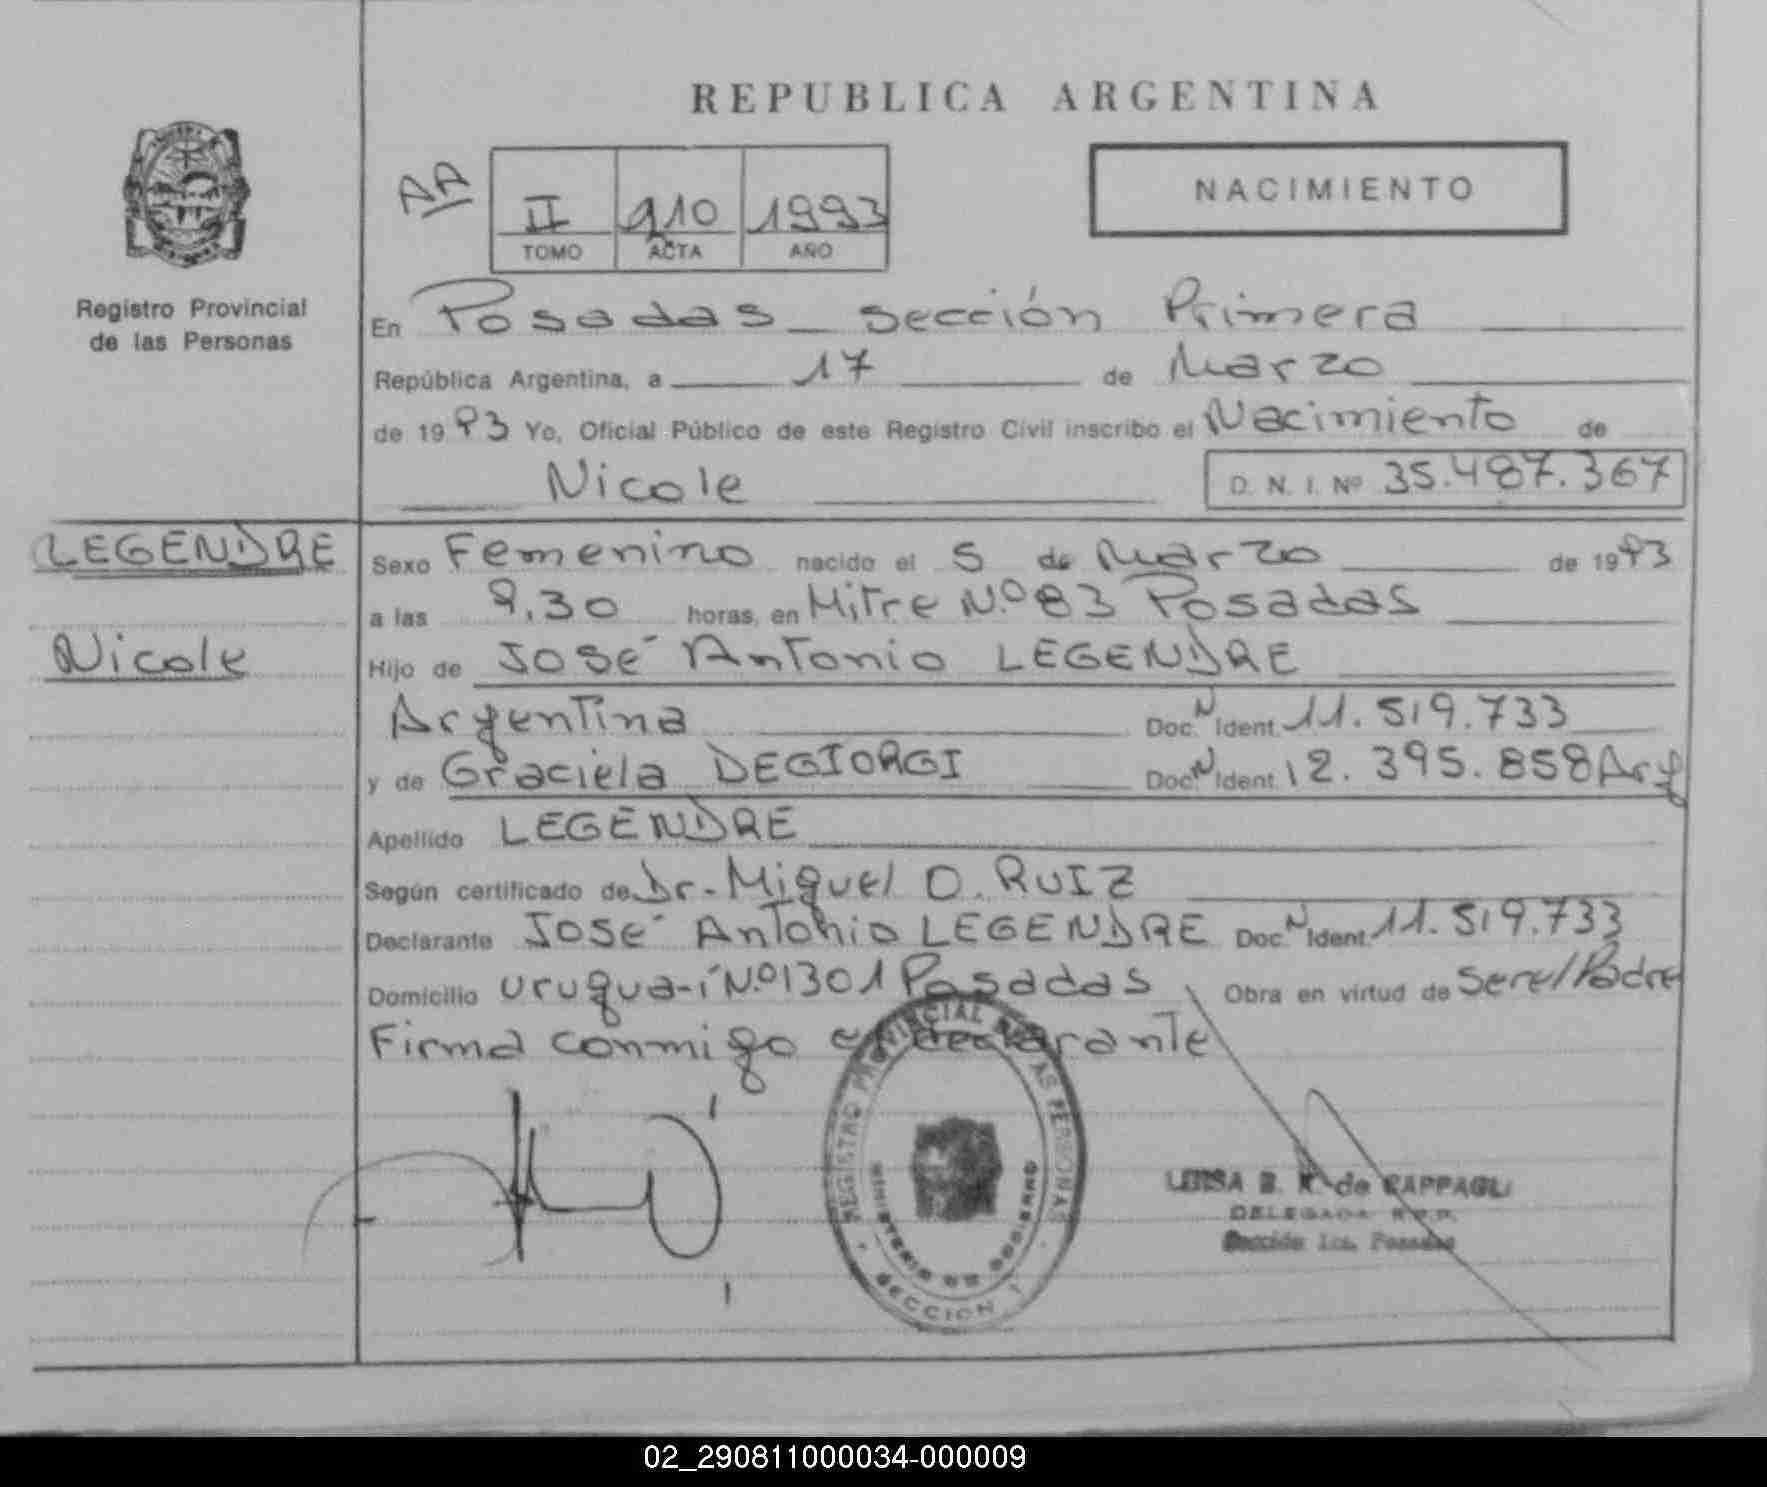 REPUBLICA ARGENTINA
NACIMIENTO
AA
II 910 1993
TOMO ACTA AÑO
Registro Provincial
de las Personas
En Posadas sección Primera
República Argentina, a 17 de Marzo
de 1993 Yo, Oficial Público de este Registro Civil inscribo el Nacimiento de
Nicole D. N. I. Nº 35.487.367
LEGENDRE
Nicole
Sexo Femenino nacido el 5 de Marzo de 1993
a las 9.30 horas, en Mitre N.º 83 Posadas
Hijo de José Antonio LEGENDRE
Argentina Doc. N Ident. 11.519.733
y de Graciela DEGIORGI Doc. N Ident. 12.395.858 Arg
Apellido LEGENDRE
Según certificado de Dr. Miguel O. RUIZ
Declarante José Antonio LEGENDRE Doc. N Ident. 11.519.733
Domicilio Urugua-í N.º 1301 Posadas Obra en virtud de Ser el Padre
Firma conmigo el declarante
REGISTRO PROVINCIAL DE LAS PERSONAS
MINISTERIO DE GOBIERNO
SECCION 1
LUISA B. K. de RAPPAGLI
DELEGADA R.P.P.
Sección 1ra. Posadas
02_290811000034-000009